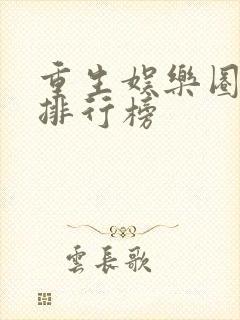 重生娛樂圈
排行榜
雲長歌